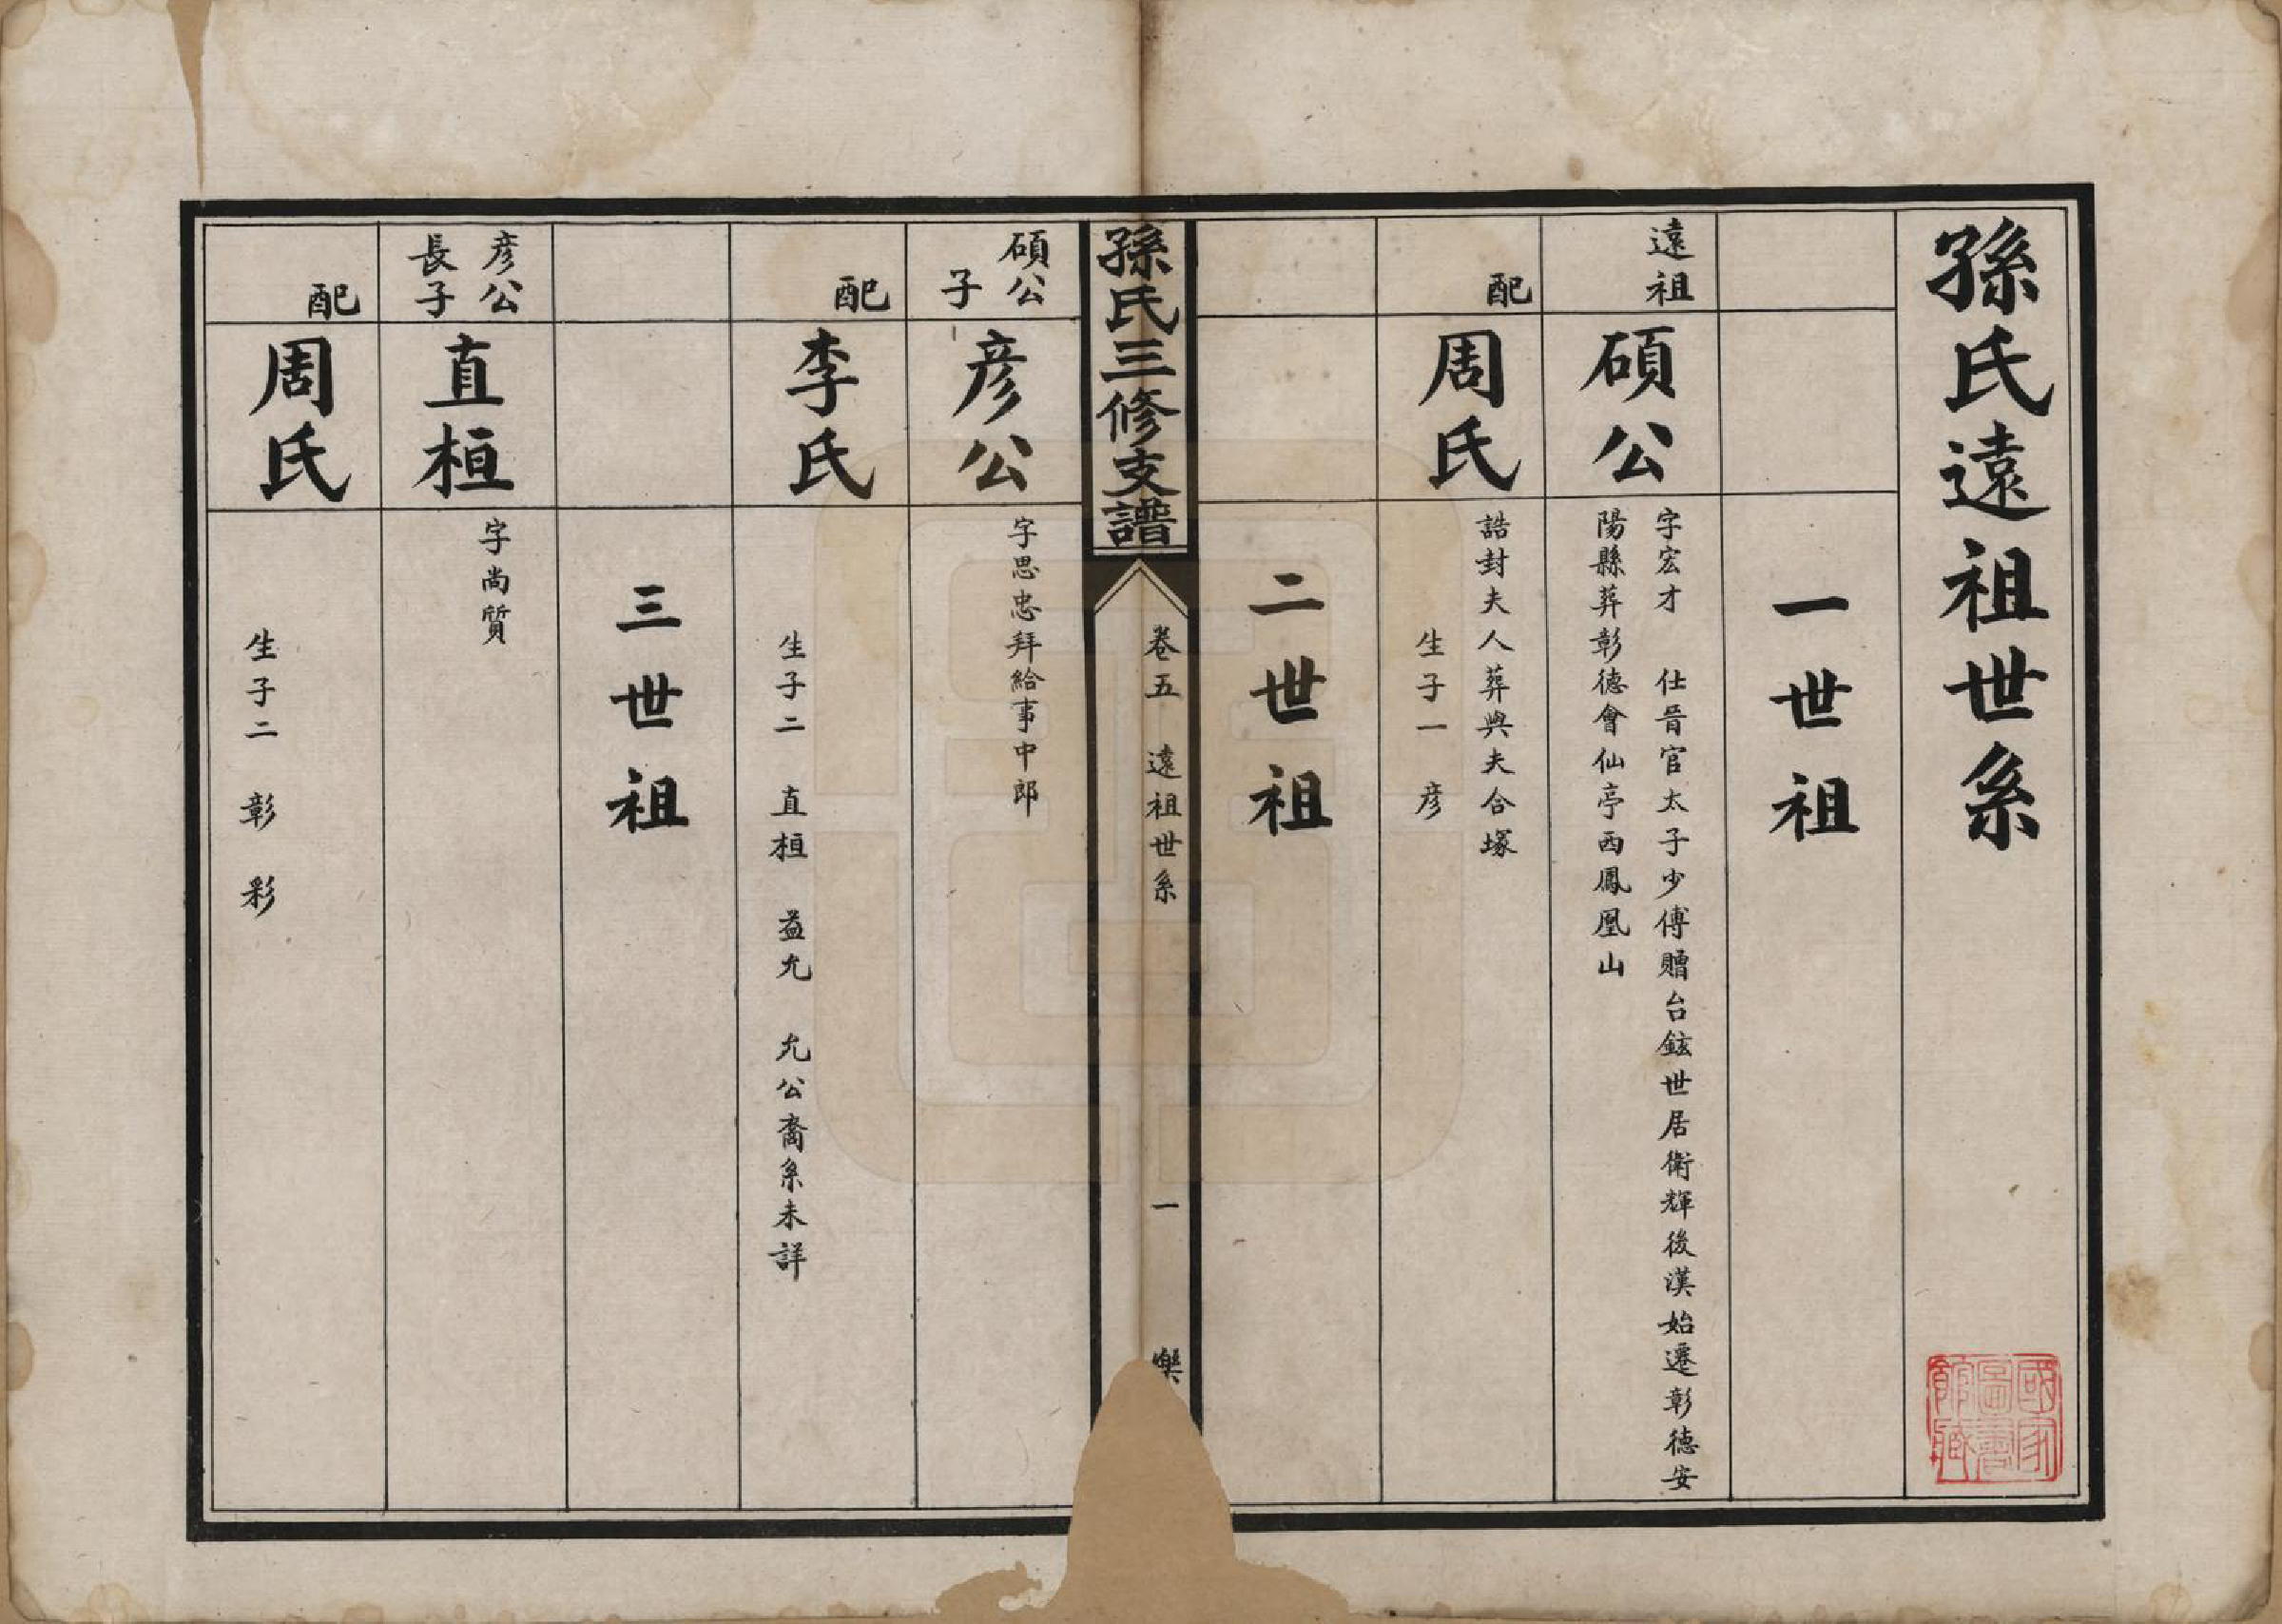 孫氏遠祖世系
一世祖
遠祖
碩公
字宏才　仕晉官太子少傅贈台鉉世居衛輝後漢始遷彰德安
陽縣葬彰德會仙亭西鳳凰山
配
周氏
誥封夫人葬與夫合塚
生子一　彥
二世祖
孫氏三修支譜
卷五　遠祖世系
一
樂
碩公
子
彥公
字思忠拜給事中郎
配
李氏
生子二　直桓　益允　允公裔系未詳
三世祖
彥公
長子
直桓
字尚質
配
周氏
生子二　彰　彩
國家
圖書
館藏